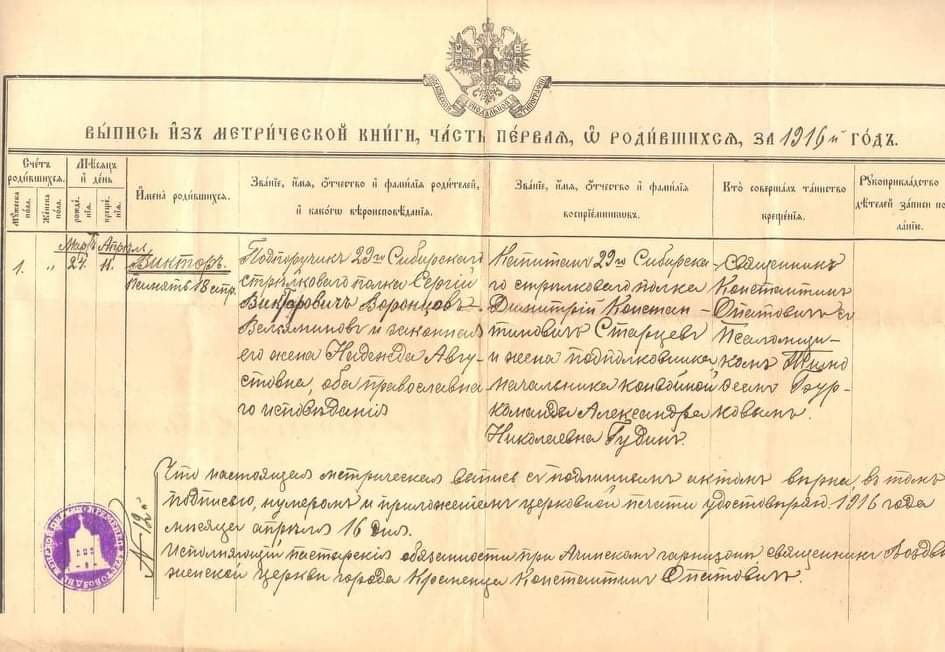 МОСКОВСКОЙ СѴНОДАЛЬНОЙ ТИПОГРАФІИ
ВЫПИСЬ ИЗЪ МЕТРИЧЕСКОЙ КНИГИ, ЧАСТЬ ПЕРВАЯ, Ѡ РОДИВШИХСЯ, ЗА 1916й ГОДЪ.
Счетъ родившихся.
Мужеска пола.
Женска пола.
Мѣсяцъ и день
рожденія.
крещенія.
Имена родившихся.
Званіе, имя, отчество и фамилія родителей,
и какого вѣроисповѣданія.
Званіе, имя, отчество и фамилія
воспріемниковъ.
Кто совершалъ таинство
крещенія.
Рукоприкладство
дѣтелей записи по
ланію.
1.
"
Мартъ
24.
Апрѣль
11.
Викторъ.
Память 18 апр.
Подпоручикъ 29го Сибирскаго
стрѣлковаго полка Сергій
Викторовичъ Воронцовъ-
Вельяминовъ и законная
его жена Надежда Авгу-
стовна, оба православна-
го исповѣданія
Капитанъ 29го Сибирска-
го стрѣлковаго полка
Димитрій Констан-
тиновичъ Старцевъ
и жена подполковника
начальника конвойной
команды Александра
Николаевна Гудинъ.
Священникъ
Константинъ
Опатовичъ съ
Псаломщи-
комъ
№ 12й
Что настоящая метрическая запись съ подлиннымъ актомъ вѣрна, въ томъ
подписью, нумеромъ и приложеніемъ церковной печати удостовѣряю 1916 года
мѣсяца апрѣля 16 дня.
Исполняющій пастырскія обязанности при гарнизонѣ священникъ Воздви-
женской церкви города Кременца Константинъ Опатовичъ.